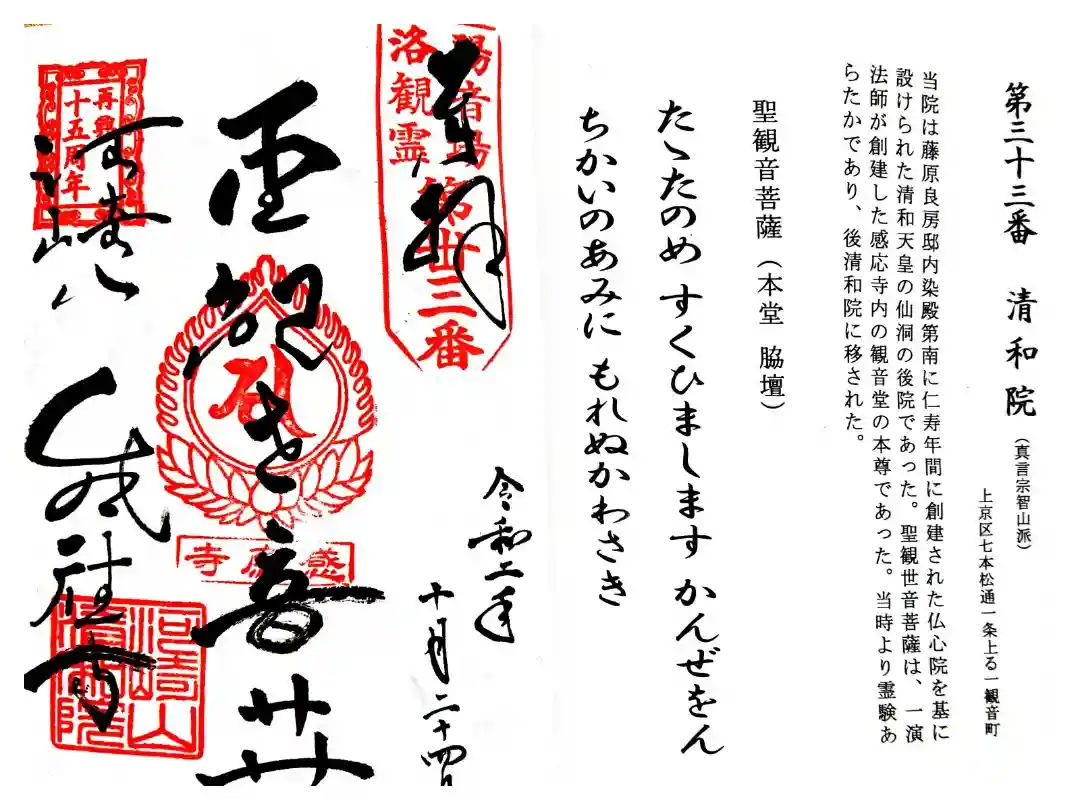 第三十三番 清和院(真言宗智山派)
上京区七本松通一条上る一観音町
当院は藤原良房邸内染殿第南に仁寿年間に創建された仏心院を基に
設けられた清和天皇の仙洞の後院であった。聖観世音菩薩は、一演
法師が創建した感応寺内の観音堂の本尊であった。当時より霊験あ
らたかであり、後清和院に移された。
聖観音菩薩(本堂 脇壇)
たゝたのめ すくひまします かんぜをん
ちかいのあみに もれぬかわさき
奉拝
洛陽
観音
霊場
第卅三番
令和二年
十月二十四日
再興
十五周年
河崎山
清和院